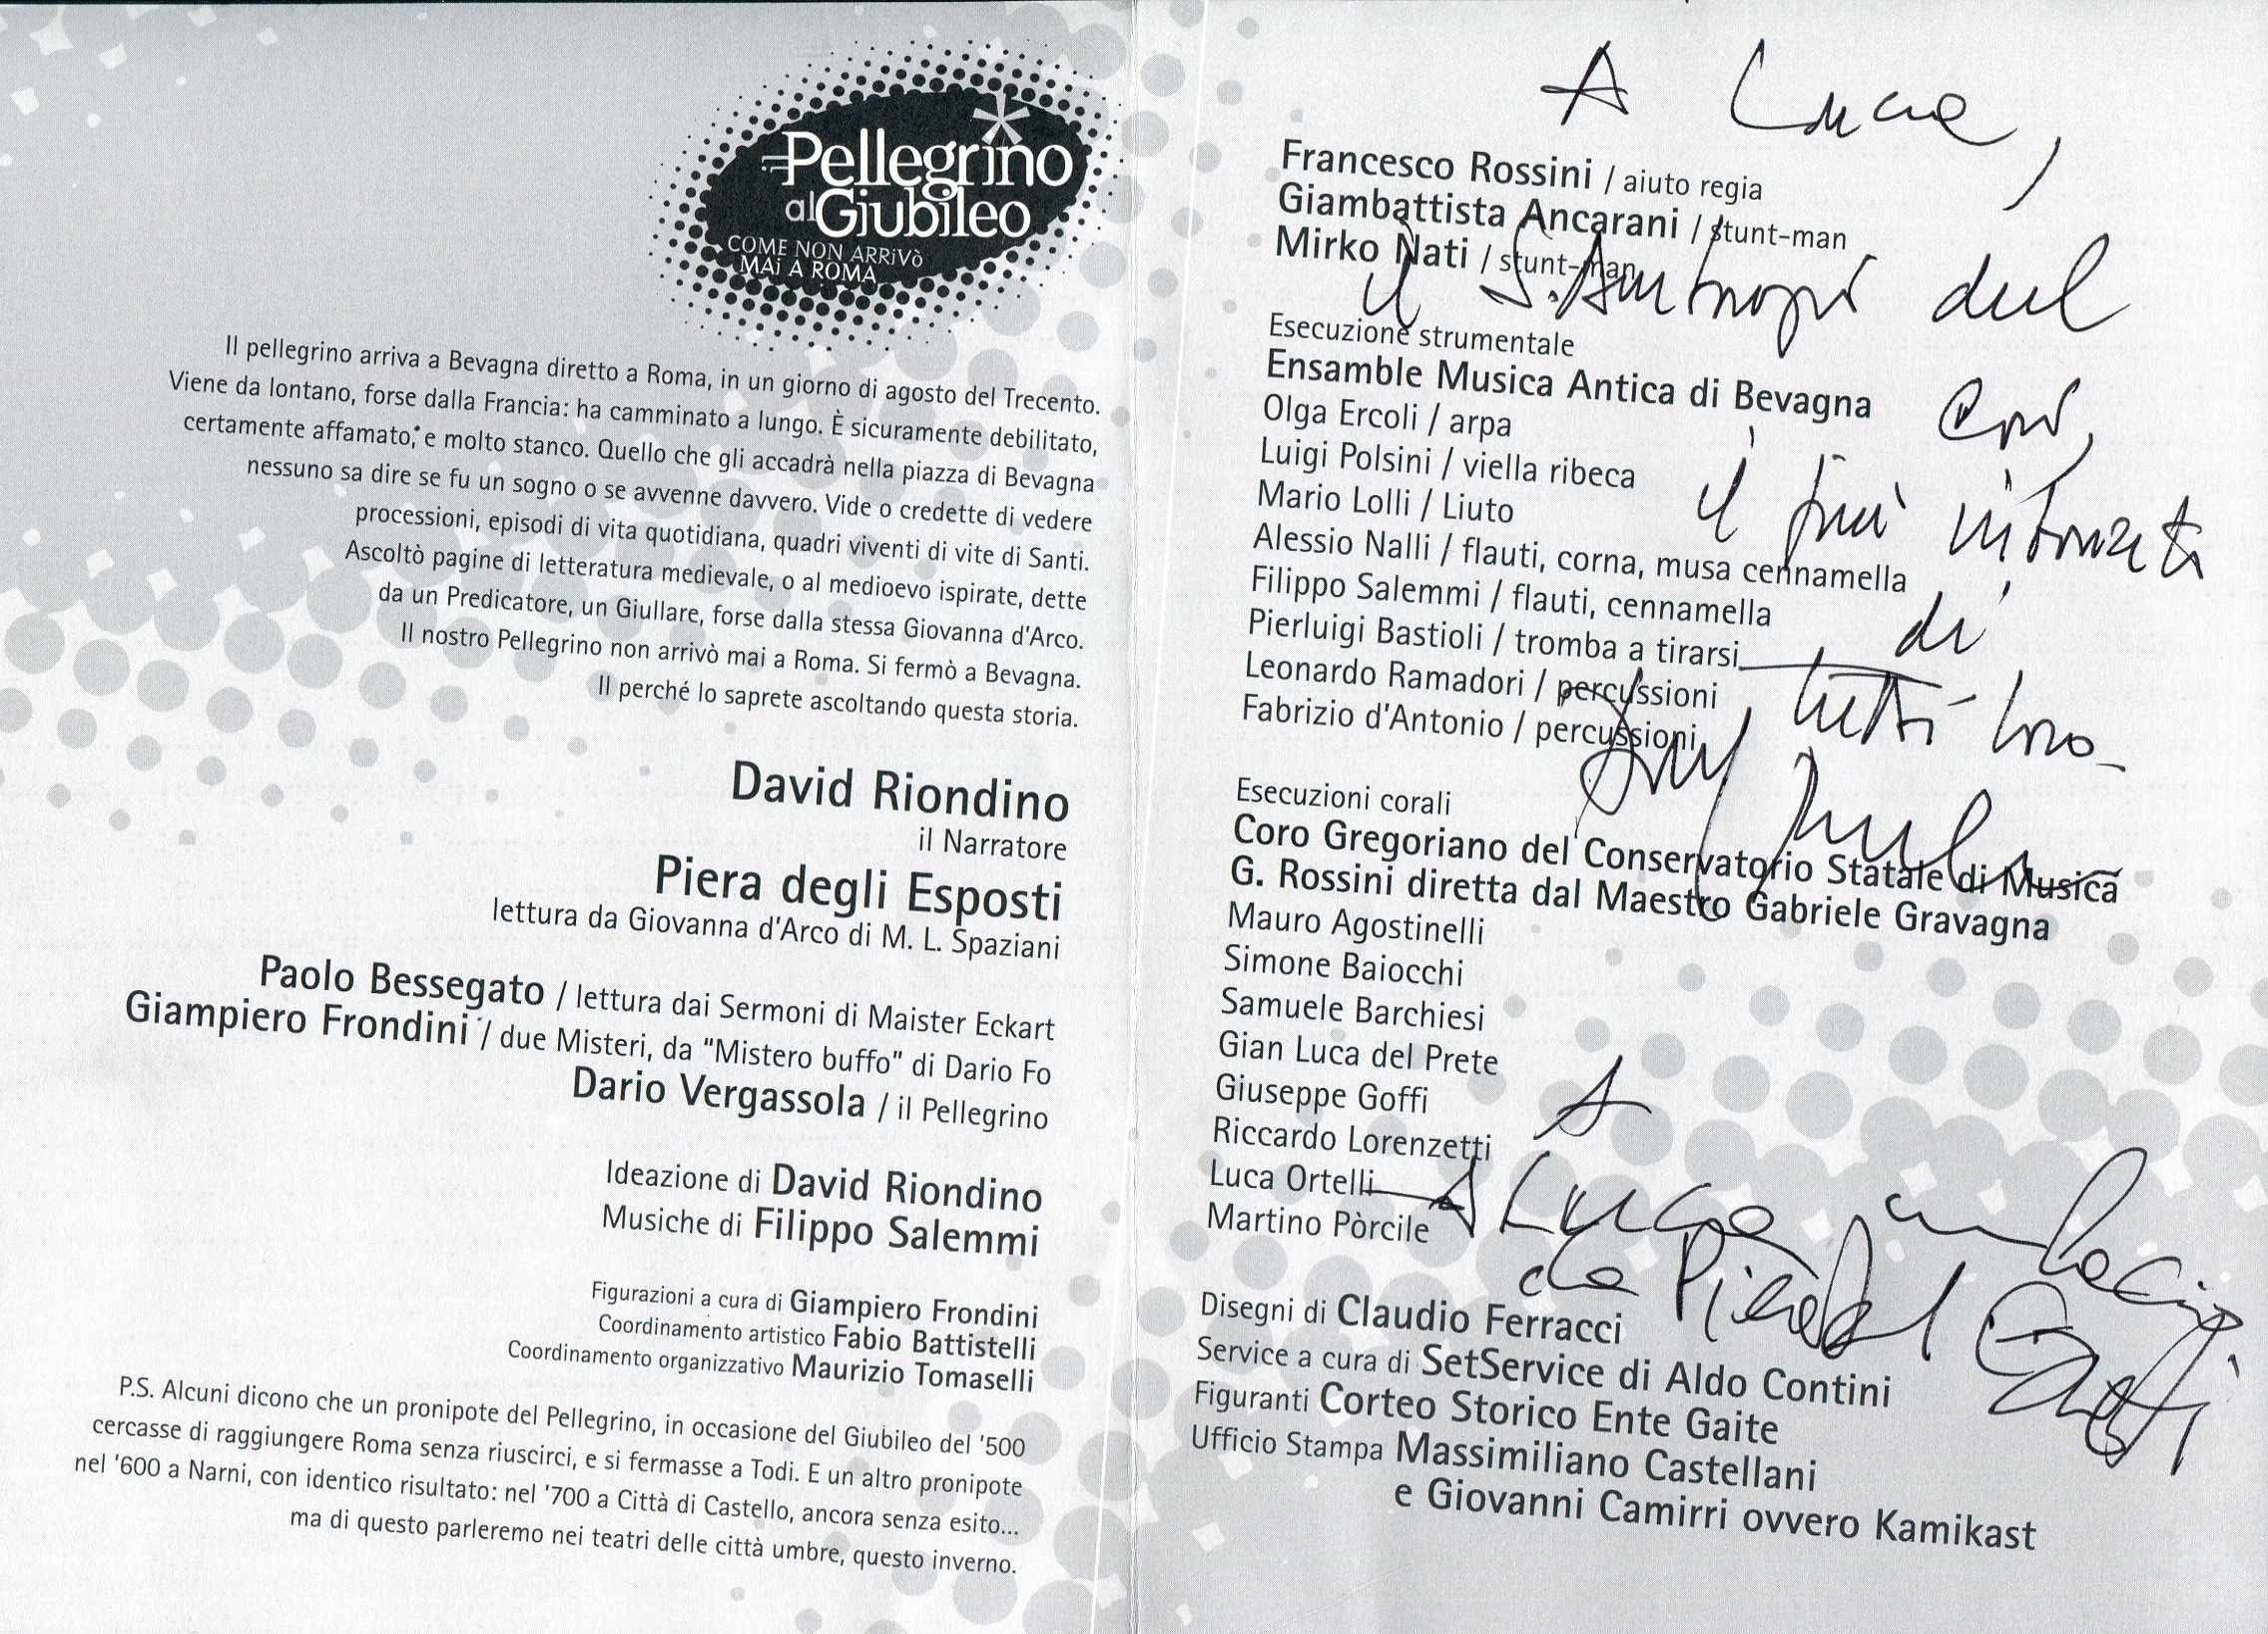 Pellegrino
al Giubileo
COME NON ARRiVò
MAi A ROMA
Il pellegrino arriva a Bevagna diretto a Roma, in un giorno di agosto del Trecento.
Viene da lontano, forse dalla Francia: ha camminato a lungo. È sicuramente debilitato,
certamente affamato, e molto stanco. Quello che gli accadrà nella piazza di Bevagna
nessuno sa dire se fu un sogno o se avvenne davvero. Vide o credette di vedere
processioni, episodi di vita quotidiana, quadri viventi di vite di Santi.
Ascoltò pagine di letteratura medievale, o al medioevo ispirate, dette
da un Predicatore, un Giullare, forse dalla stessa Giovanna d'Arco.
Il nostro Pellegrino non arrivò mai a Roma. Si fermò a Bevagna.
Il perché lo saprete ascoltando questa storia.
David Riondino
il Narratore
Piera degli Esposti
lettura da Giovanna d'Arco di M. L. Spaziani
Paolo Bessegato / lettura dai Sermoni di Maister Eckart
Giampiero Frondini / due Misteri, da "Mistero buffo" di Dario Fo
Dario Vergassola / il Pellegrino
Ideazione di David Riondino
Musiche di Filippo Salemmi
Figurazioni a cura di Giampiero Frondini
Coordinamento artistico Fabio Battistelli
Coordinamento organizzativo Maurizio Tomaselli
P.S. Alcuni dicono che un pronipote del Pellegrino, in occasione del Giubileo del '500
cercasse di raggiungere Roma senza riuscirci, e si fermasse a Todi. E un altro pronipote
nel '600 a Narni, con identico risultato: nel '700 a Città di Castello, ancora senza esito...
ma di questo parleremo nei teatri delle città umbre, questo inverno.
A Luca,
Francesco Rossini / aiuto regia
Giambattista Ancarani / stunt-man
Mirko Nati / stunt-man
il S. del
Esecuzione strumentale
Ensamble Musica Antica di Bevagna
Olga Ercoli / arpa
Luigi Polsini / viella ribeca
il più
Mario Lolli / Liuto
Alessio Nalli / flauti, corna, musa cennamella
Filippo Salemmi / flauti, cennamella
di
Pierluigi Bastioli / tromba a tirarsi
Leonardo Ramadori / percussioni
tutti loro
Fabrizio d'Antonio / percussioni
Esecuzioni corali
Coro Gregoriano del Conservatorio Statale di Musica
G. Rossini diretta dal Maestro Gabriele Gravagna
Mauro Agostinelli
Simone Baiocchi
Samuele Barchiesi
Gian Luca del Prete
Giuseppe Goffi
A
Riccardo Lorenzetti
Luca Ortelli
A Luca un bacio
Martino Pòrcile
da Piera degli Esposti
Disegni di Claudio Ferracci
Service a cura di SetService di Aldo Contini
Figuranti Corteo Storico Ente Gaite
Ufficio Stampa Massimiliano Castellani
e Giovanni Camirri ovvero Kamikast